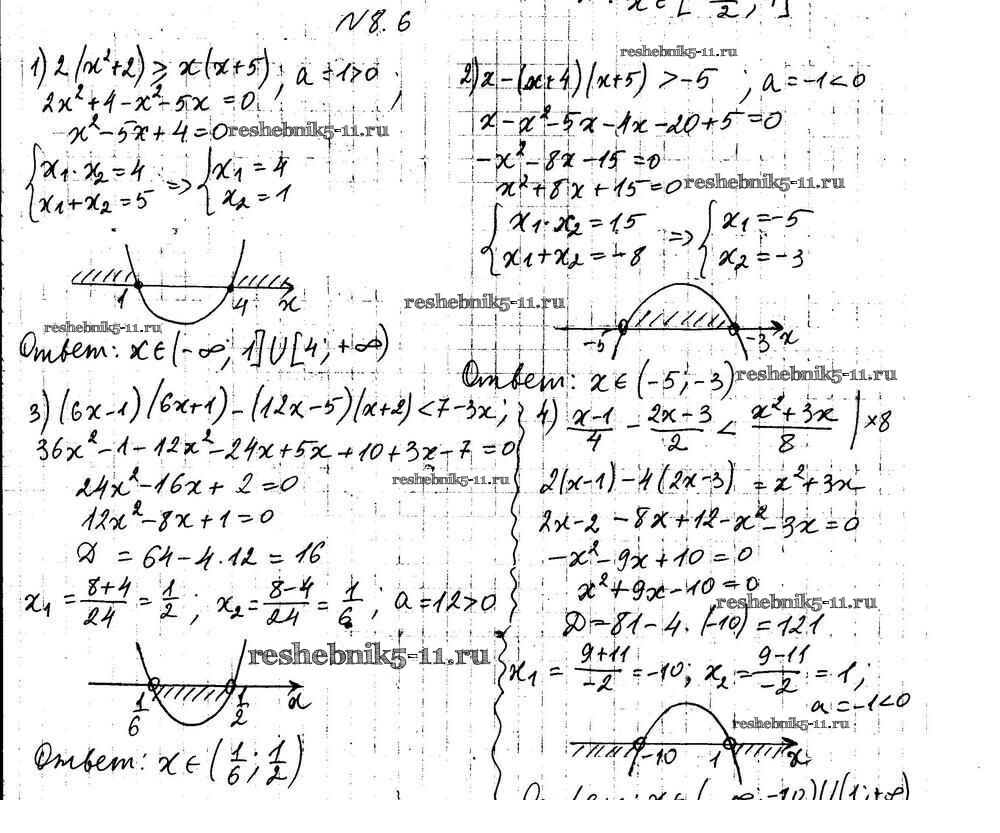 N 8.6
x ∈ [ /2 ; 1]
reshebnik5-11.ru
1) 2(x²+2) ≥ x(x+5); a=1>0;
2x²+4-x²-5x=0
x²-5x+4=0
reshebnik5-11.ru
{x₁·x₂=4 => {x₁=4
{x₁+x₂=5 {x₂=1
1 4 x
reshebnik5-11.ru
Ответ: x∈(-∞; 1]∪[4; +∞)
2) x-(x+4)(x+5)>-5; a=-1<0
x-x²-5x-4x-20+5=0
-x²-8x-15=0
x²+8x+15=0
reshebnik5-11.ru
{x₁·x₂=15 => {x₁=-5
{x₁+x₂=-8 {x₂=-3
reshebnik5-11.ru
-5 -3 x
Ответ: x∈(-5;-3)
reshebnik5-11.ru
3) (6x-1)(6x+1)-(12x-5)(x+2)<7-3x;
36x²-1-12x²-24x+5x+10+3x-7=0
reshebnik5-11.ru
24x²-16x+2=0
12x²-8x+1=0
D=64-4·12=16
x₁=(8+4)/24=1/2; x₂=(8-4)/24=1/6; a=12>0
reshebnik5-11.ru
1/6 1/2 x
Ответ: x∈(1/6; 1/2)
4) (x-1)/4 - (2x-3)/2 < (x²+3x)/8 | ×8
2(x-1)-4(2x-3)=x²+3x
2x-2-8x+12-x²-3x=0
-x²-9x+10=0
x²+9x-10=0
reshebnik5-11.ru
D=81-4·(-10)=121
x₁=(9+11)/-2=-10; x₂=(9-11)/-2=1;
a=-1<0
reshebnik5-11.ru
-10 1 x
Ответ: x∈(-∞;-10)∪(1;+∞)